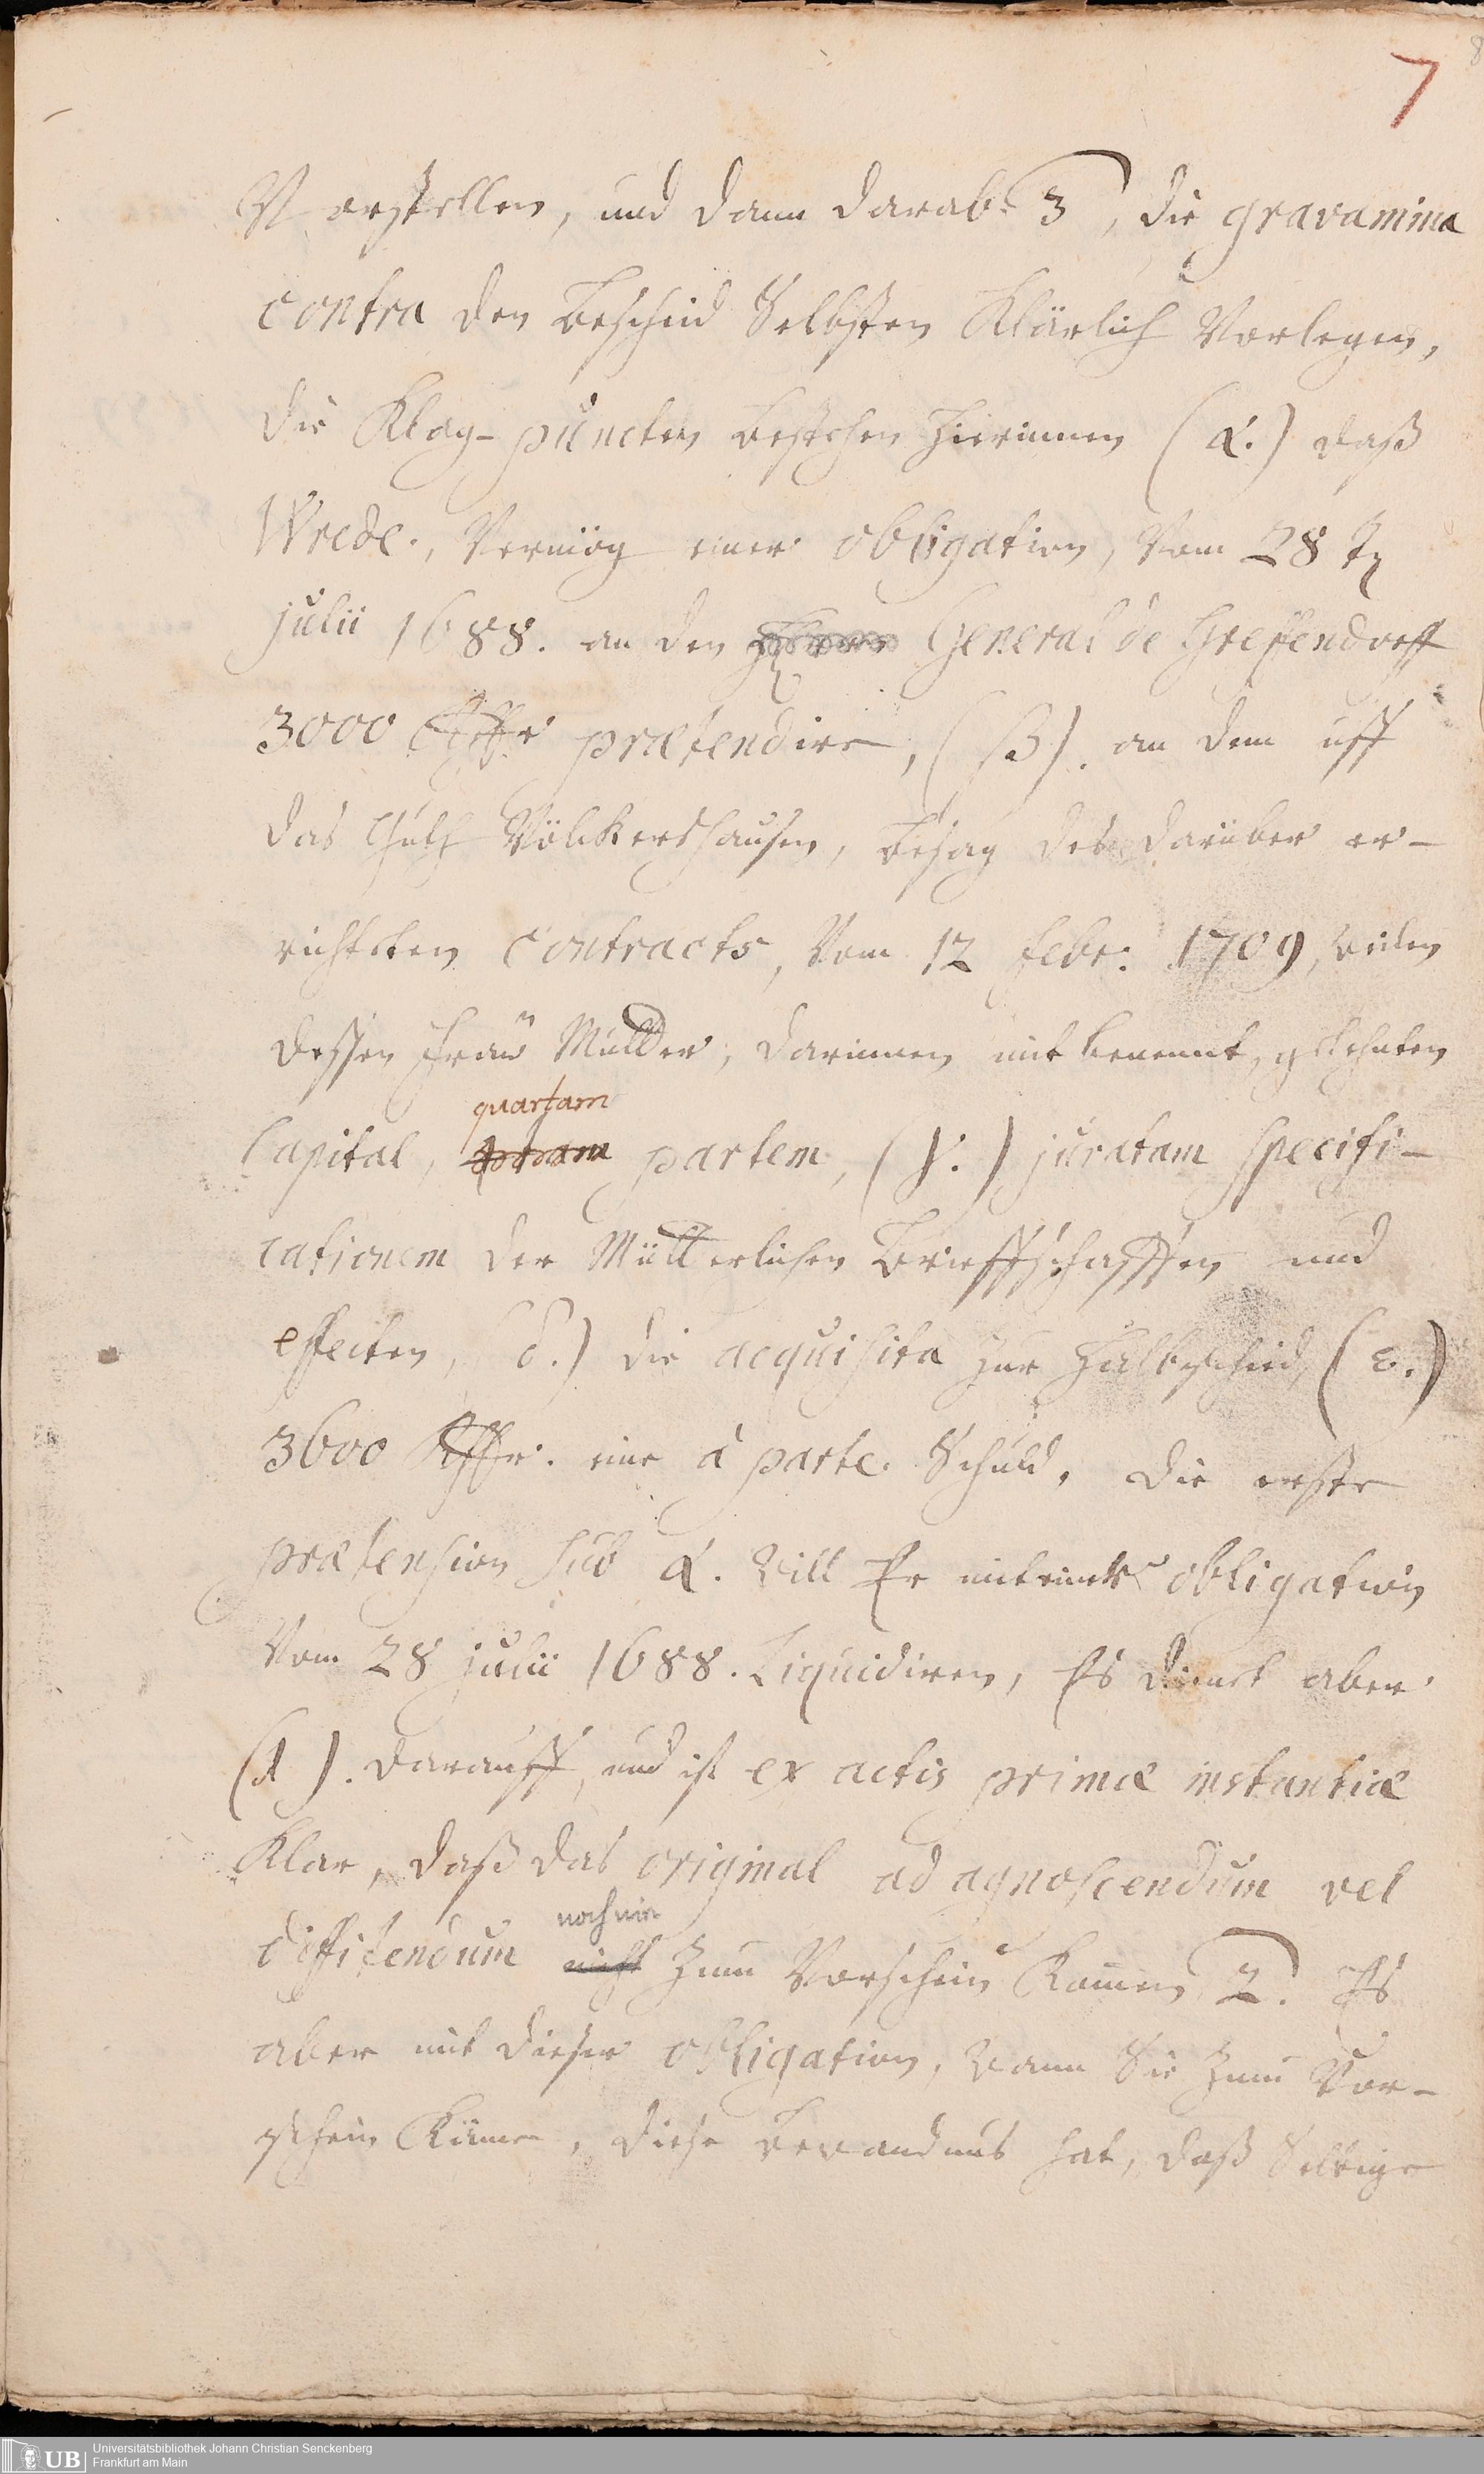 7
8
Vorstellen, und dann darab 3, die gravamina
contra den Bescheid Selbsten Klärlich Vorlegen,
die Klag-puncten bestehen hierinnen (α.) daß
Wrede, Vermög einer obligation, Vom 28
julii 1688. an den General de Greffendorff
3000 prætendire, (β). an dem uff
das Guth Völckershausen, besag des darüber er-
richteten Contracts, Vom 12 febr. 1709, von
dessen Frau Mutter, darinnen mit benennt, gelehnten
Capital, quartam partem, (γ.) juratam specifi-
cationem der Mütterlichen Brieffschafften und
effecten, δ.) die acquisita zur Halbscheid, (ε.)
3600 eine à parte Schuld. die erste
prætension sub α. Will Er mit einer obligation
Vom 28 julii 1688. Liquidiren, Es dienet aber
(1). darauff, und ist ex actis primæ instantiæ
Klar, daß das original ad agnoscendum vel
diffitendum noch nie zum Vorschein Kommen 2. Es
aber mit dieser obligation, Wann Sie zum Vor-
schein Käme, diese bewandnus hat, daß Selbige
UB
Universitätsbibliothek Johann Christian Senckenberg
Frankfurt am Main